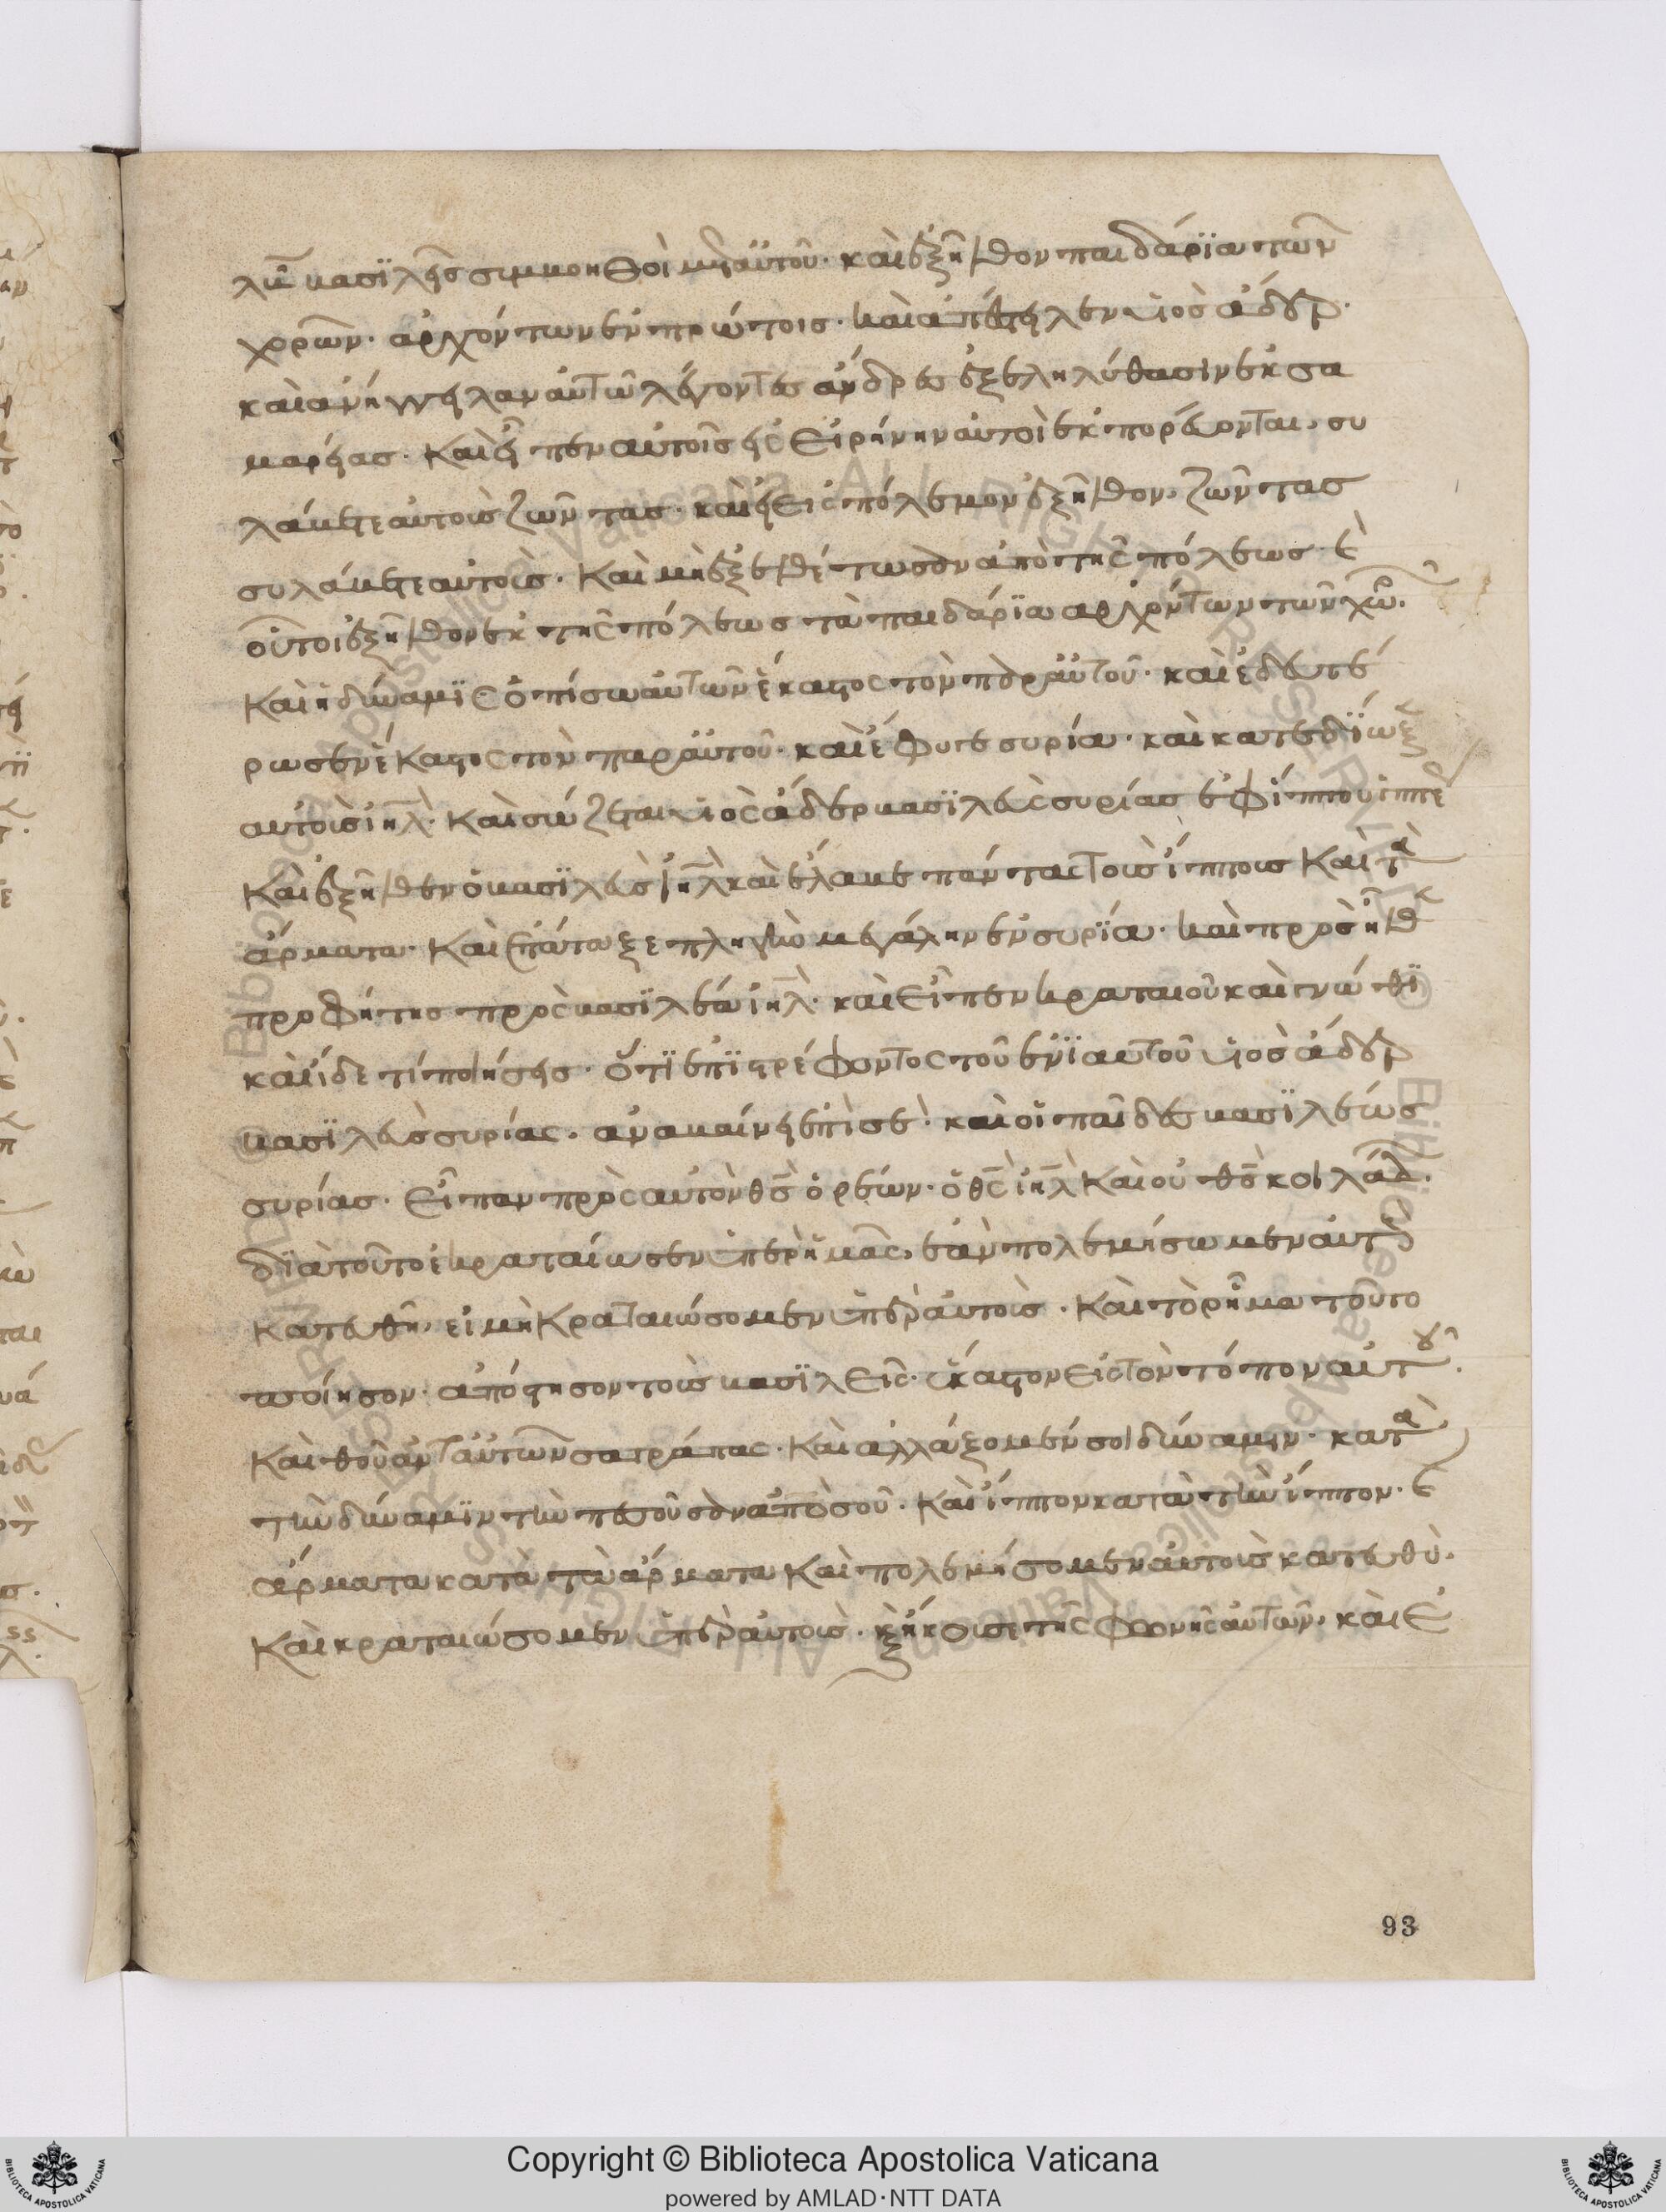 λεῖς βασϊλεῖς συμβοηθοὶ μετ' αὐτοῦ· καὶ ἐξῆλθον παιδάρϊα τῶν
χορῶν· ἀρχόντων ἐν πρώτοις· καὶ ἀπέστειλεν υἱὸς ἄδερ·
καὶ ἀνήγγειλαν αὐτῶ λέγοντες ἄνδρες ἐξεληλύθασιν ἐκ σα
μαρείας· καὶ εἶπεν αὐτοῖς εἰ εἰς εἰρήνην αὐτοὶ ἐκπορεύονται, συ
λάβετε αὐτοὺς ζῶντας· καὶ εἰ εἰς πόλεμον ἐξῆλθον, ζῶντας
συλάβετε αὐτούς· καὶ μὴ ἐξελθέτωσαν ἀπὸ τῆς πόλεως· καὶ
οὗτοι ἐξῆλθον ἐκ τῆς πόλεως τὰ παιδάρϊα ἀρχόντων τῶν χω·
καὶ ἡ δύναμϊς ὀπίσω αὐτῶν ἕκαστος τὸν παρ' αὐτοῦ· καὶ ἐδευτέ
ρωσεν ἕκαστος τὸν παρ' αὐτοῦ· καὶ ἔφυγε συρία· καὶ κατεδίωξ
αὐτοὺς ιηλ· καὶ σώζεται υἱὸς ἄδερ βασϊλεὺς συρίας ἐφ' ἵππου ἱππέ
καὶ ἐξῆλθεν ὁ βασϊλεὺς ιηλ καὶ ἔλαβε πάντας τοὺς ἵππους καὶ τὰ
ἅρματα· καὶ ἐπάταξε πληγὴν μεγάλην ἐν συρϊία· καὶ προσῆλθ
προφήτης πρὸς βασϊλέα ιηλ· καὶ εἶπεν κραταιοῦ καὶ γνώθϊ
καὶ ἴδε τί ποιήσεις· ὅτϊ ἐπϊστρέφοντος τοῦ ἐνϊαυτοῦ υἱὸς ἄδερ
βασϊλεὺς συρίας· ἀναβαίνει ἐπὶ σέ· καὶ οἱ παῖδες βασϊλέως
συρίας· εἶπαν πρὸς αὐτὸν θς ὀρέων· ὁ θς ιηλ καὶ οὐ θς κοιλάδ·
δϊὰ τοῦτο ἐκραταίωσεν ὑπὲρ ἡμᾶς, ἐὰν πολεμήσωμεν αὐτοὺς
κατευθὴ, εἰ μὴ κραταιώσομεν ὑπὲρ αὐτούς· καὶ τὸ ρῆμα τοῦτο
ποίησον· ἀπόστησον τοὺς βασϊλεῖς· ἕκαστον εἰς τὸν τόπον αὐτοῦ·
καὶ θοῦ ἀντ' αὐτῶν σατράπας· καὶ ἀλλάξομέν σοι δύναμιν· κατὰ
τὴν δύναμϊν τὴν πεσοῦσαν ἀπὸ σοῦ· καὶ ἵππον κατὰ τὴν ἵππον· καὶ
ἅρματα κατὰ τὰ ἅρματα καὶ πολεμήσομεν αὐτοὺς κατευθὺ·
καὶ κραταιώσομεν ὑπὲρ αὐτούς· καὶ ἤκουσε τῆς φωνῆς αὐτῶν, καὶ ἐ
93
Copyright © Biblioteca Apostolica Vaticana
powered by AMLAD·NTT DATA